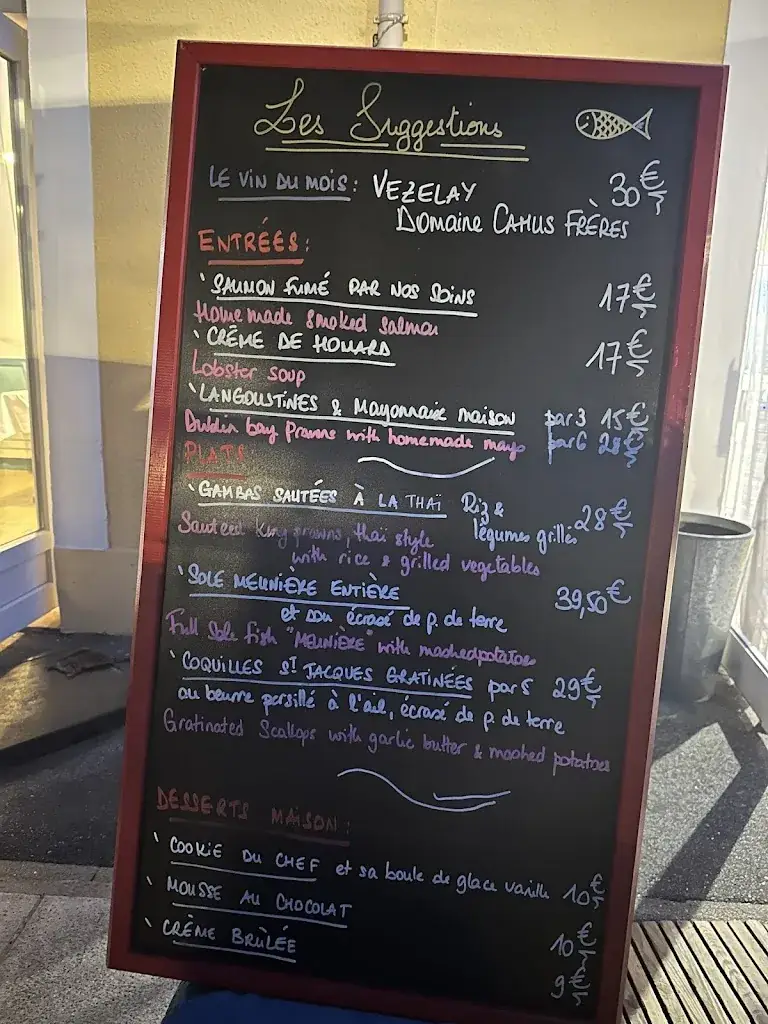 Les Suggestions
LE VIN DU MOIS: VEZELAY 30€
DOMAINE CAMUS FRÈRES
ENTRÉES:
SAUMON FUMÉ PAR NOS SOINS 17€
Home made smoked salmon
CRÈME DE HOMARD 17€
Lobster soup
LANGOUSTINES & Mayonnaise maison par 3 15€
Dublin bay Prawns with homemade mayo par 6 28€
PLATS
GAMBAS SAUTÉES À LA THAÏ Riz & légumes grillés 28€
Sauteed King prawns, thaï style
with rice & grilled vegetables
SOLE MEUNIÈRE ENTIÈRE 39,50€
et son écrasé de p. de terre
Full Sole fish "MEUNIÈRE" with mashedpotatoes
COQUILLES ST JACQUES GRATINÉES par 5 29€
au beurre persillé à l'ail, écrasé de p. de terre
Gratinated Scallops with garlic butter & mashed potatoes
DESSERTS MAISON:
COOKIE DU CHEF et sa boule de glace vanille 10€
MOUSSE AU CHOCOLAT 10€
CRÈME BRÛLÉE 9€